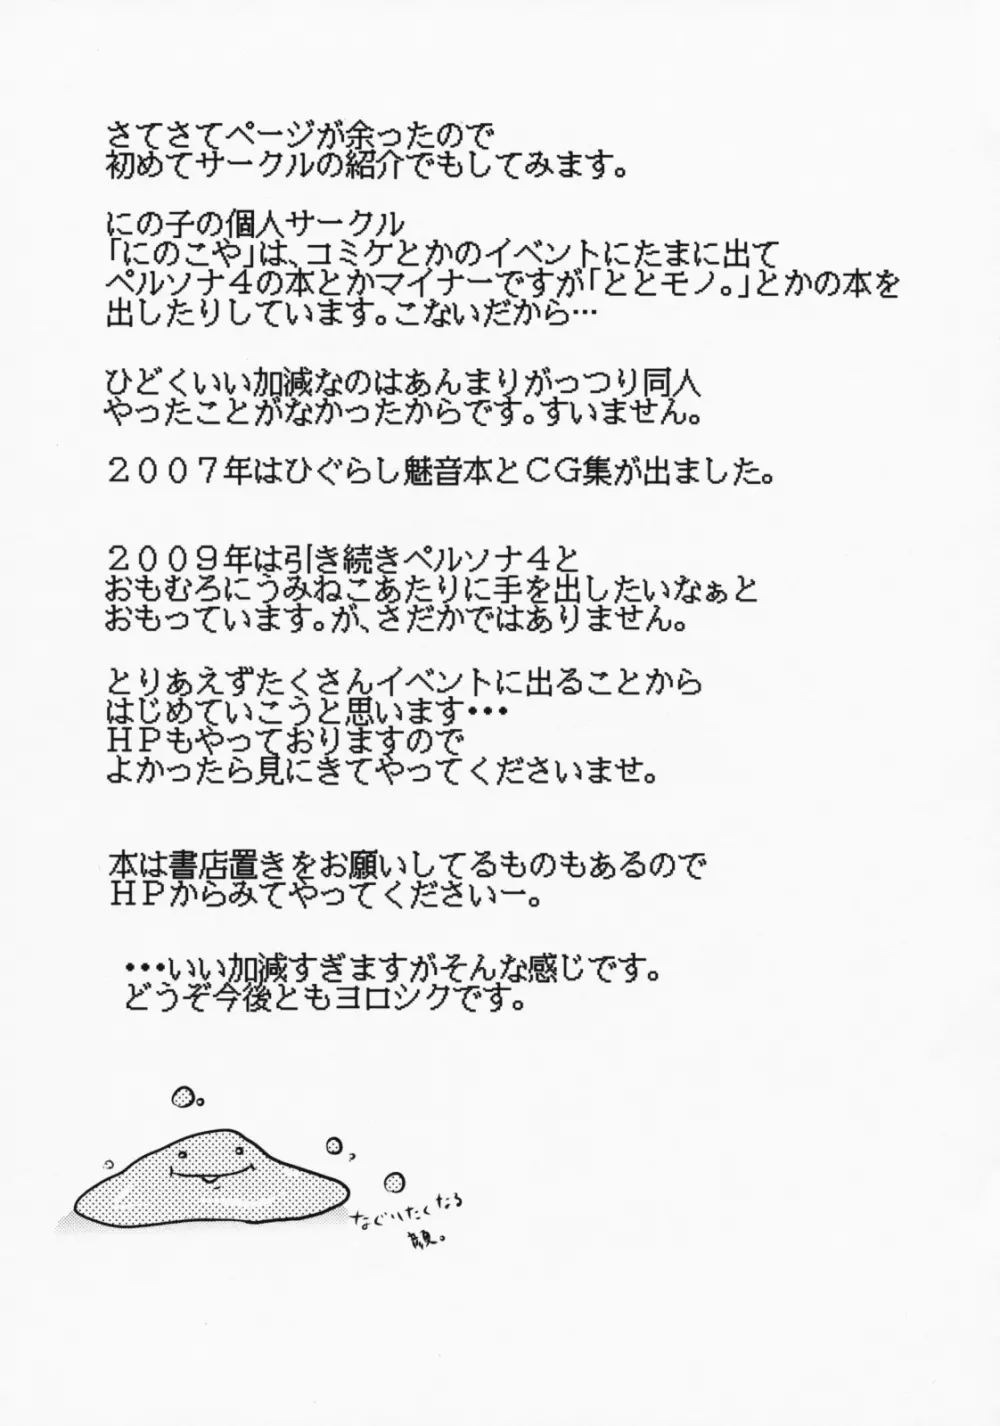 さてさてページが余ったので
初めてサークルの紹介でもしてみます。
にの子の個人サークル
「にのこや」は、コミケとかのイベントにたまに出て
ペルソナ４の本とかマイナーですが「ととモノ。」とかの本を
出したりしています。こないだから…
ひどくいい加減なのはあんまりがっつり同人
やったことがなかったからです。すいません。
２００７年はひぐらし魅音本とＣＧ集が出ました。
２００９年は引き続きペルソナ４と
おもむろにうみねこあたりに手を出したいなぁと
おもっています。が、さだかではありません。
とりあえずたくさんイベントに出ることから
はじめていこうと思います・・・
ＨＰもやっておりますので
よかったら見にきてやってくださいませ。
本は書店置きをお願いしてるものもあるので
ＨＰからみてやってくださいー。
・・・いい加減すぎますがそんな感じです。
どうぞ今後ともヨロシクです。
なぐりたくなる
顔。